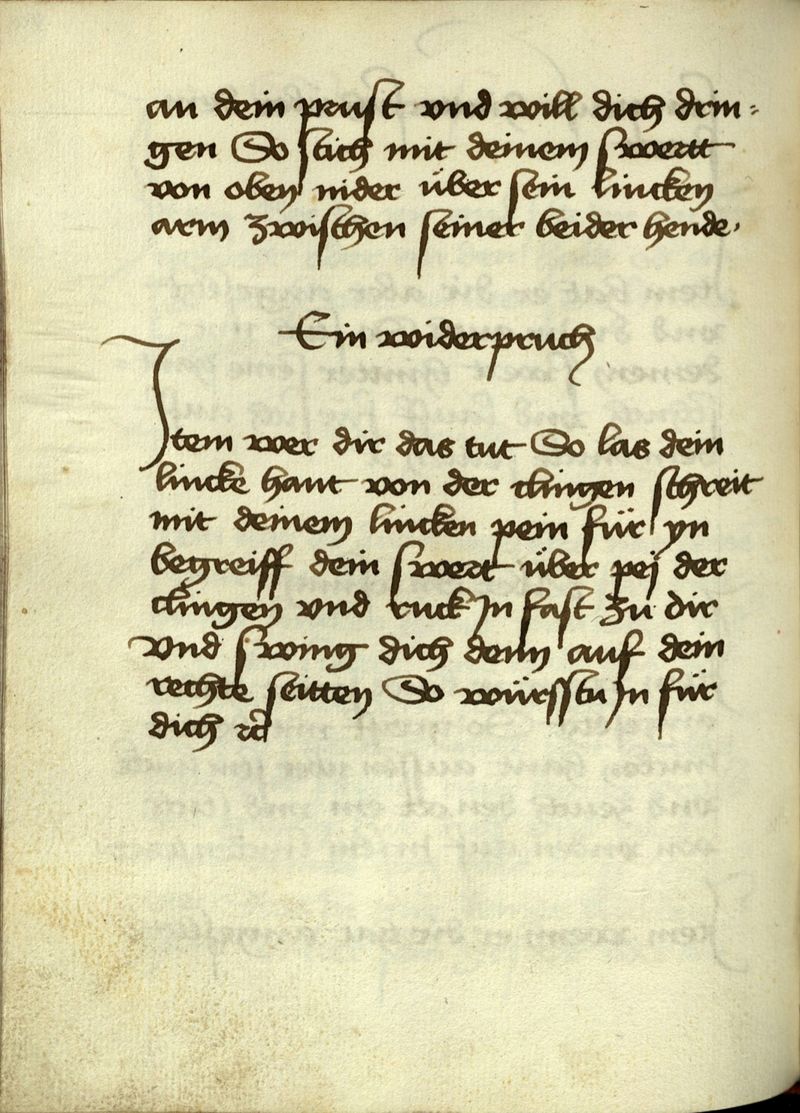 an dein prust vnd will dich drin⸗
gen So stich mit deinem swertt
von oben nider über sein lincken
arm zwischen seiner beider hende·
Ein widerpruch
Item wer dir das tut So las dein
lincke hant von der clingen schreit
mit deinem lincken pein für yn
begreiff dein swert über pej der
clingen vnd ruck Jn fast zu dir
vnd swing dich denn auf dein
rechte seitten So würfstu Jn für
dich ꝛc